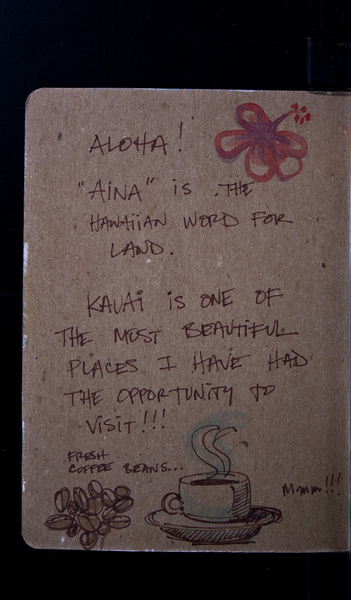 ALOHA!
"AINA" is THE
HAWAiiAN WORD FOR
LAND.
KAUAi is ONE OF
THE MOST BEAUTiFUL
PLACES I HAVE HAD
THE OPPORTUNiTY TO
ViSiT!!!
FRESH
COFFEE BEANS...
Mmmm!!!